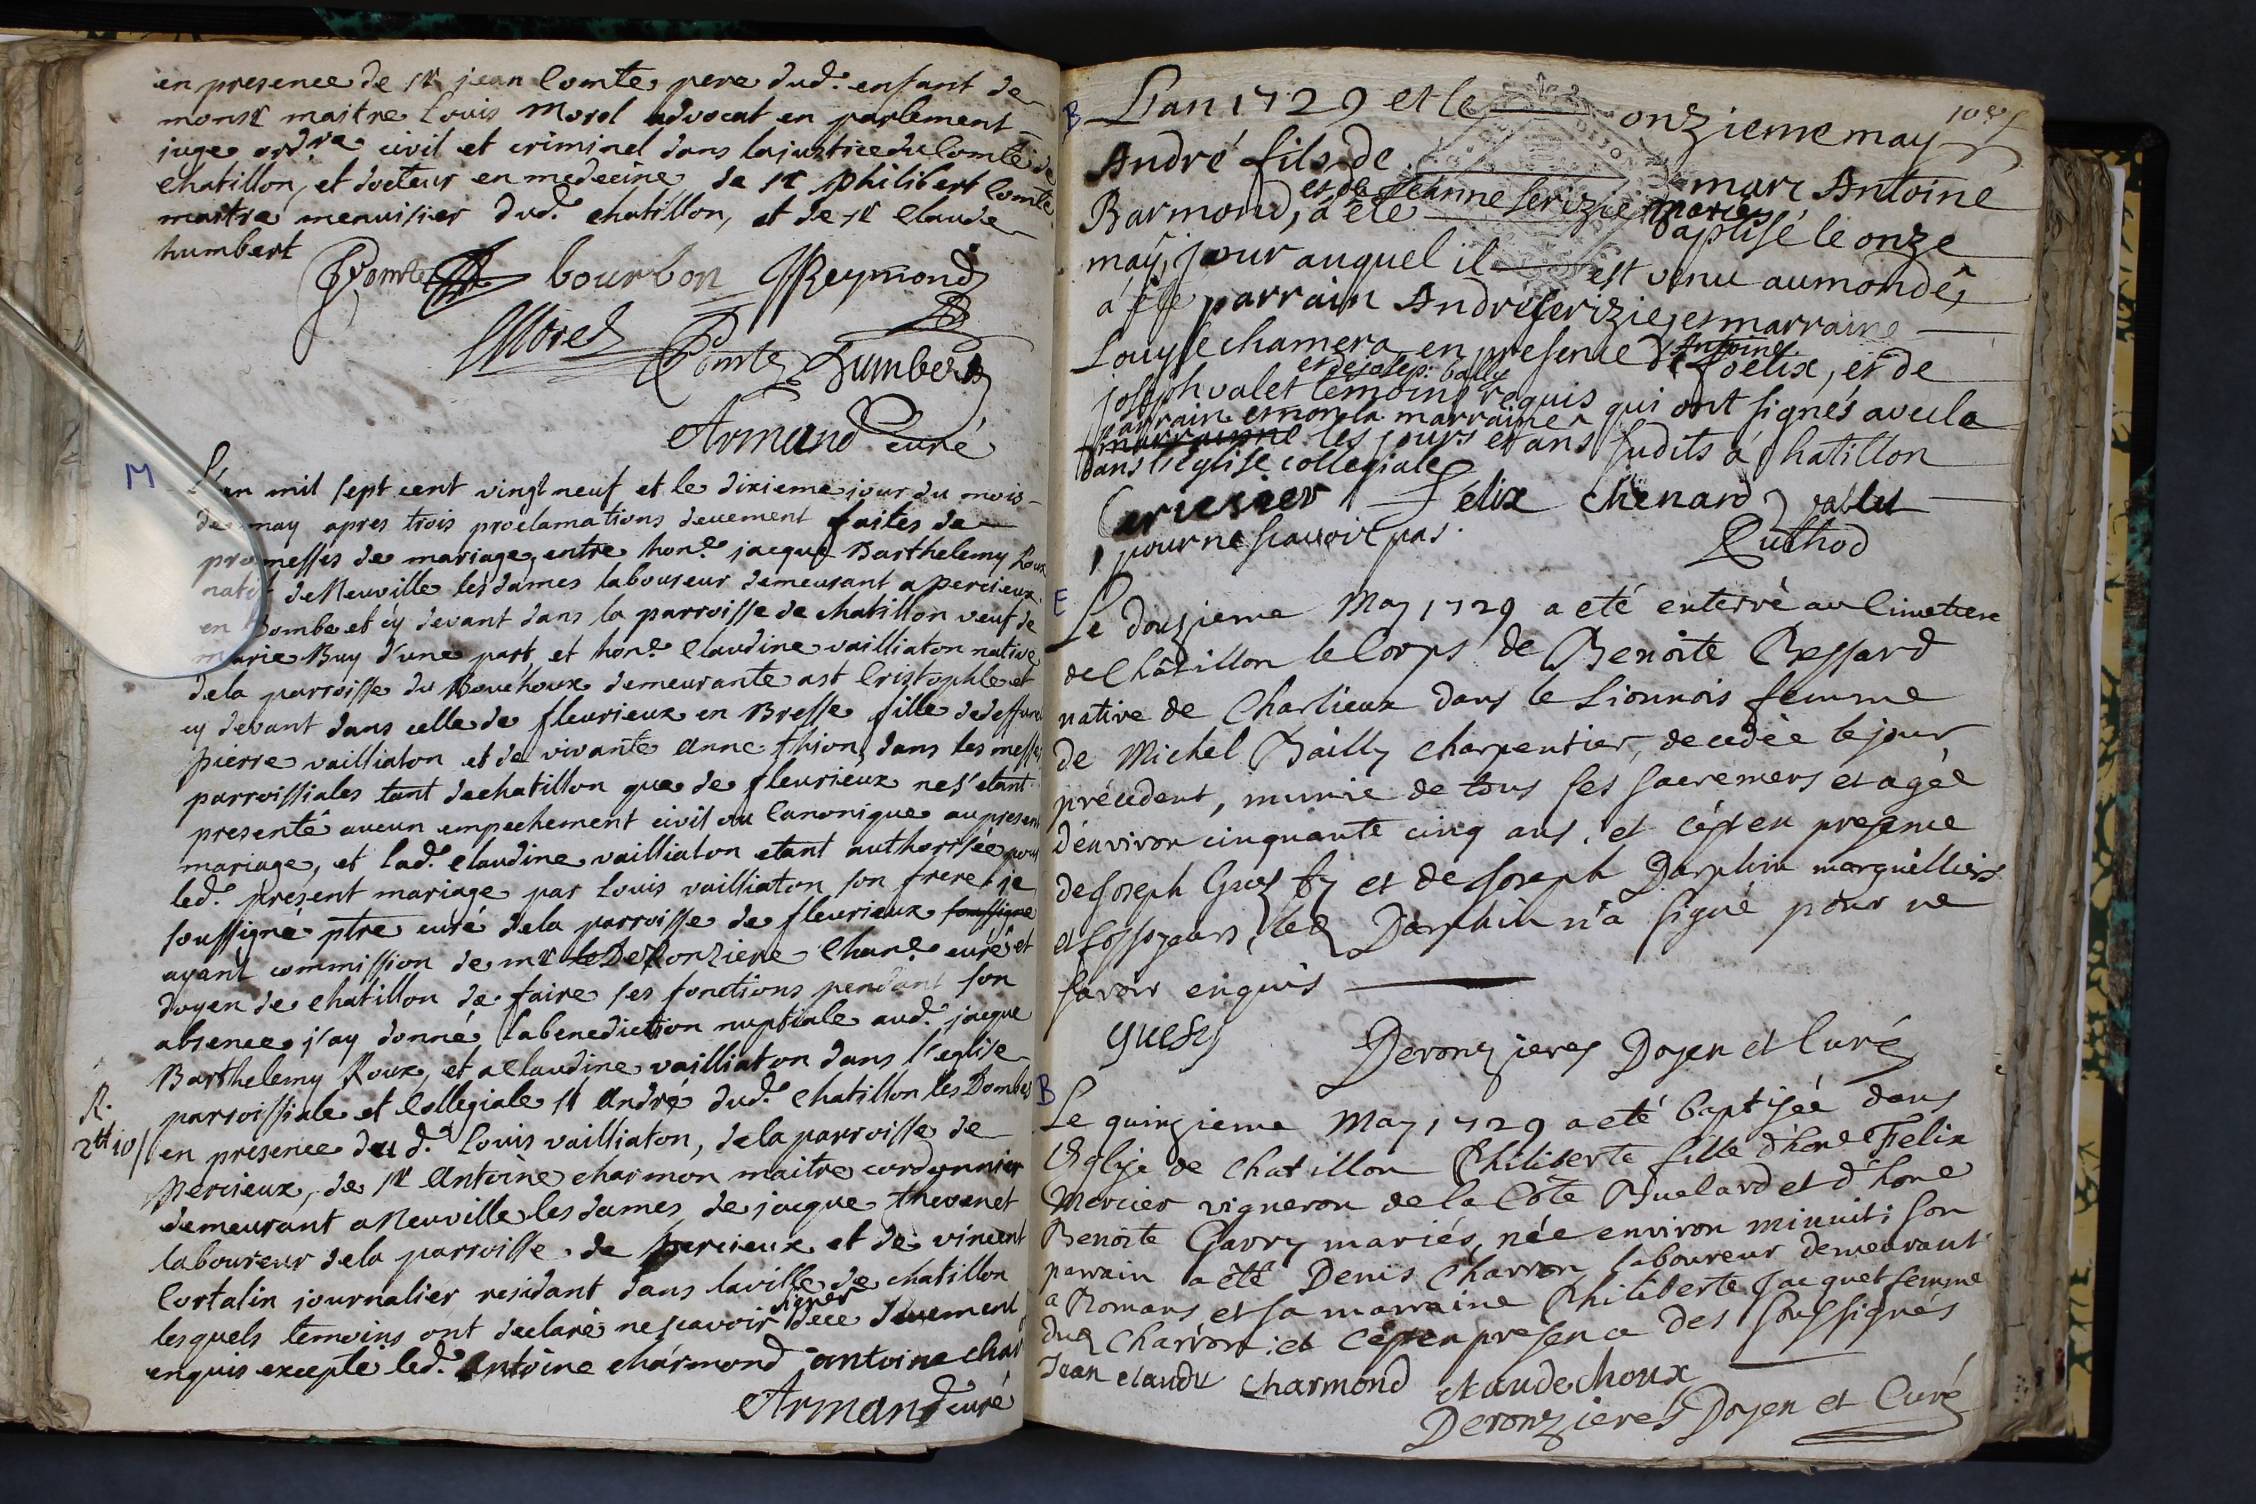 en presence de sr jean Comte pere dud. enfant de
monsr maitre Louis Morel advocat en parlement
juge ordre civil et criminel dans la justice du Comté de
chatillon, et docteur en medecine, de sr philibert Comte
maitre menuisier dud. chatillon, et de sr Claude
humbert
JComte bourbon JReymond
LMorel PComte humbert
Armand curé
M
L'an mil sept cent vingt neuf et le dixieme jour du mois
de may apres trois proclamations deuement faites de
promesses de mariage entre hone. jacque Barthelemy Roux
natif de Neuville les dames laboureur demeurant a percieux
en Dombe et cy devant dans la parroisse de chatillon veuf de
marie Buy d'une part, et hone. Claudine vailliaton native
de la parroisse du Bouchoux demeurante a st Cristophle et
cy devant dans celle de fleurieux en Bresse fille de deffunct
pierre vailliaton et de vivante anne thion, dans les messes
parroissiales tant de chatillon que de fleurieux ne s'etant
presenté aucun empechement civil ou Canonique au present
mariage, et lad. Claudine vailliaton etant authorisée pour
led. present mariage par Louis vailliaton son frere je
soussigné ptre curé de la parroisse de fleurieux soussigné
ayant commission de mr le Deronziere Chane. curé et
doyen de chatillon de faire ses fonctions pendant son
absence j'ay donné la benediction nuptiale aud. jacque
Barthelemy Roux, et a Claudine vailliaton dans l'eglise
parroissiale et Collegiale st André dud. chatillon les Dombes
R.
2tt 10s
en presence du d. Louis vailliaton, de la parroisse de
percieux, de sr Antoine charmon maitre cordonnier
demeurant a Neuville les dames, de jacque thevenet
laboureur de la parroisse de percieux et de vincent
Cortalin journalier residant dans la ville de chatillon
lesquels temoins ont declaré ne scavoir signer de ce deuement
enquis excepté led. Antoine charmond antoine char
Armand curé
B
L'an 1729 et le onzieme may
André fils de marc Antoine
Barmond, et de Jeanne Serizier mariés a été baptisé le onze
may, jour auquel il est venu au monde,
a été parrain André serizier, et marraine
Louyse chamera en presence de Antoine foelix, et de
joseph valet et de jalep. bally temoins requis qui ont signés avec la
parrain et non la marraine
marrainne les jours et ans sudits a Chatillon
dans l'eglise collegiale
Ceriesier Félix chenard vallet
pour ne scavoir pas. Ruthod
E
Le douzieme May 1729 a eté enterré au Cimetiere
de Châtillon le Corps de Benoite Bessard
native de Charlieux dans le Lionnois femme
de Michel Bailly charpentier, decedée le jour
précedent, munie de tous ses sacremens et agée
d'environ cinquante cinq ans, et c'est en presence
de Joseph Guesty et de Joseph Darphin marguilliers
et fossoyeurs, led Darphin n'a signé pour ne
savoir enquis
guesty
Deronzieres Doyen et Curé
B
Le quinzieme May 1729 a eté baptisée dans
l'Eglise de Chatillon Philiberte fille d'hone Felix
Mercier vigneron de la Côte Buelard et d'hone
Benoite Gavry mariés, née environ minuit; son
parrain a été Denis Charron laboureur demeurant
a Romans et sa marraine Philiberte Jacquet femme
dud Charron; et c'est en presence des soussignés
Jean claude charmond claude choux
Deronzieres Doyen et Curé